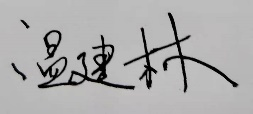 温建林